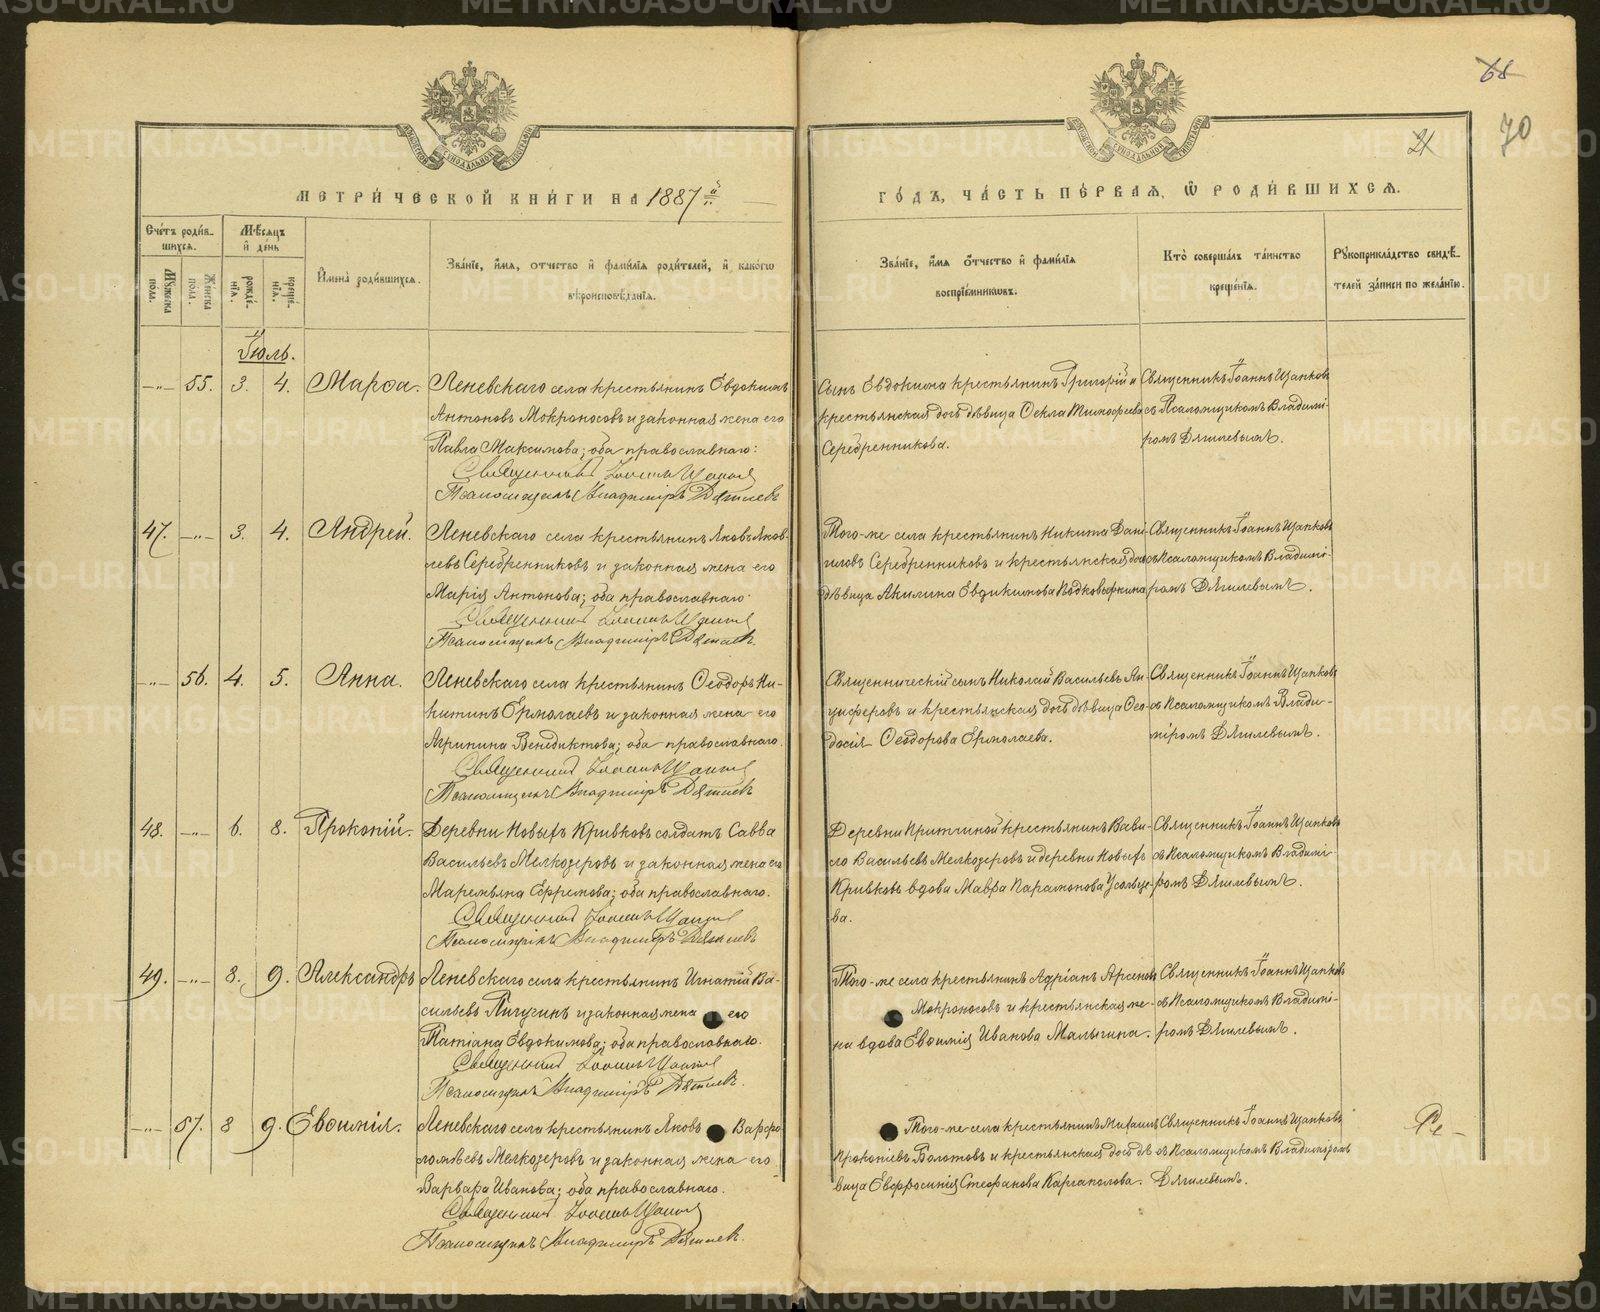 68
70
21
МЕТРИ́ЧЕСКОЙ КНИ́ГИ НА 1887 й
ГО́ДЪ, ЧА́СТЬ ПЕ́РВАЯ, Ѡ РОДИ́ВШИХСЯ.
Сче́тъ роди́в-
шихся.
Мѣ́сяцъ
и́ де́нь
Му́жеска
по́ла.
Же́нска
по́ла.
рожде́-
нія.
креще́-
нія.
И҆мена̀ роди́вшихся.
Зва́ніе, и҆́мя, о́тчество и҆ фами́лія роди́телей, и҆ како́гѡ
вѣроисповѣ́данія.
Зва́ніе, и҆́мя о҆́тчество и҆ фами́лія
воспріе́мниковъ.
Кто̀ соверша́лъ та́инство
креще́нія.
Рꙋкоприкла́дство свидѣ́-
телей за́писи по жела́нію.
Іюль.
—„— 55. 3. 4. Марѳа. Леневскаго села крестьянинъ Евдокимъ
Антоновъ Мокроносовъ и законная жена его
Павла Максимова; оба православнаго:
Священникъ Іоаннъ Цапковъ
Псаломщикъ Владиміръ Дягилевъ
Сынъ Евдокима крестьянинъ Григорій и
крестьянская дочь дѣвица Ѳекла Тимоѳеева
Серебренникова.
Священникъ Іоаннъ Цапковъ
съ Псаломщикомъ Владимі-
ромъ Дягилевымъ.
47. —„— 3. 4. Андрей. Леневскаго села крестьянинъ Яковъ Яков-
левъ Серебренниковъ и законная жена его
Марія Антонова; оба православнаго
Священникъ Іоаннъ Цапковъ
Псаломщикъ Владиміръ Дягилевъ
Того-же села крестьянинъ Никита Дані-
иловъ Серебренниковъ и крестьянская дочь
дѣвица Акилина Евдикимова Подковыркина
Священникъ Іоаннъ Цапковъ
съ Псаломщикомъ Владимі-
ромъ Дягилевымъ.
—„— 56. 4. 5. Анна. Леневскаго села крестьянинъ Ѳеодоръ Ни-
китинъ Ермолаевъ и законная жена его
Агрипина Венедиктова; оба православнаго.
Священникъ Іоаннъ Цапковъ
Псаломщикъ Владиміръ Дягилевъ
Священническій сынъ Николай Васильевъ Лю-
циферовъ и крестьянская дочь дѣвица Ѳео-
досія Ѳеодорова Ермолаева.
Священникъ Іоаннъ Цапковъ
съ Псаломщикомъ Влади-
міромъ Дягилевымъ.
48. —„— 6. 8. Прокопій. Деревни Новыхъ Кривковъ солдатъ Савва
Васильевъ Мелкозеровъ и законная жена его
Маремьяна Ефремова; оба православнаго.
Священникъ Іоаннъ Цапковъ
Псаломщикъ Владиміръ Дягилевъ
Деревни Притчиной крестьянинъ Вави-
ло Васильевъ Мелкозеровъ и деревни Новыхъ
Кривковъ вдова Мавра Парамонова Усольце-
ва.
Священникъ Іоаннъ Цапковъ
съ Псаломщикомъ Владимі-
ромъ Дягилевымъ.
49. —„— 8. 9. Александръ Леневскаго села крестьянинъ Игнатій Ва-
сильевъ Пичугинъ и законная жена его
Татіана Евдокимова; оба православнаго.
Священникъ Іоаннъ Цапковъ
Псаломщикъ Владиміръ Дягилевъ.
Того-же села крестьянинъ Адріанъ Арсеньевъ
Мокроносовъ и крестьянская же-
на вдова Евѳимія Иванова Малыгина.
Священникъ Іоаннъ Цапковъ
съ Псаломщикомъ Владимі-
ромъ Дягилевымъ.
—„— 57. 8 9. Евѳимія. Леневскаго села крестьянинъ Яковъ Варѳо-
ломѣевъ Мелкозеровъ и законная жена его
Варвара Иванова; оба православнаго.
Священникъ Іоаннъ Цапковъ
Псаломщикъ Владиміръ Дягилевъ.
Того-же села крестьянинъ Михаилъ
Прокопіевъ Болотовъ и крестьянская дочь дѣ-
вица Евфросинія Стефанова Каргаполова.
Священникъ Іоаннъ Цапковъ
съ Псаломщикомъ Владиміромъ
Дягилевымъ.
METRIKI.GASO-URAL.RU